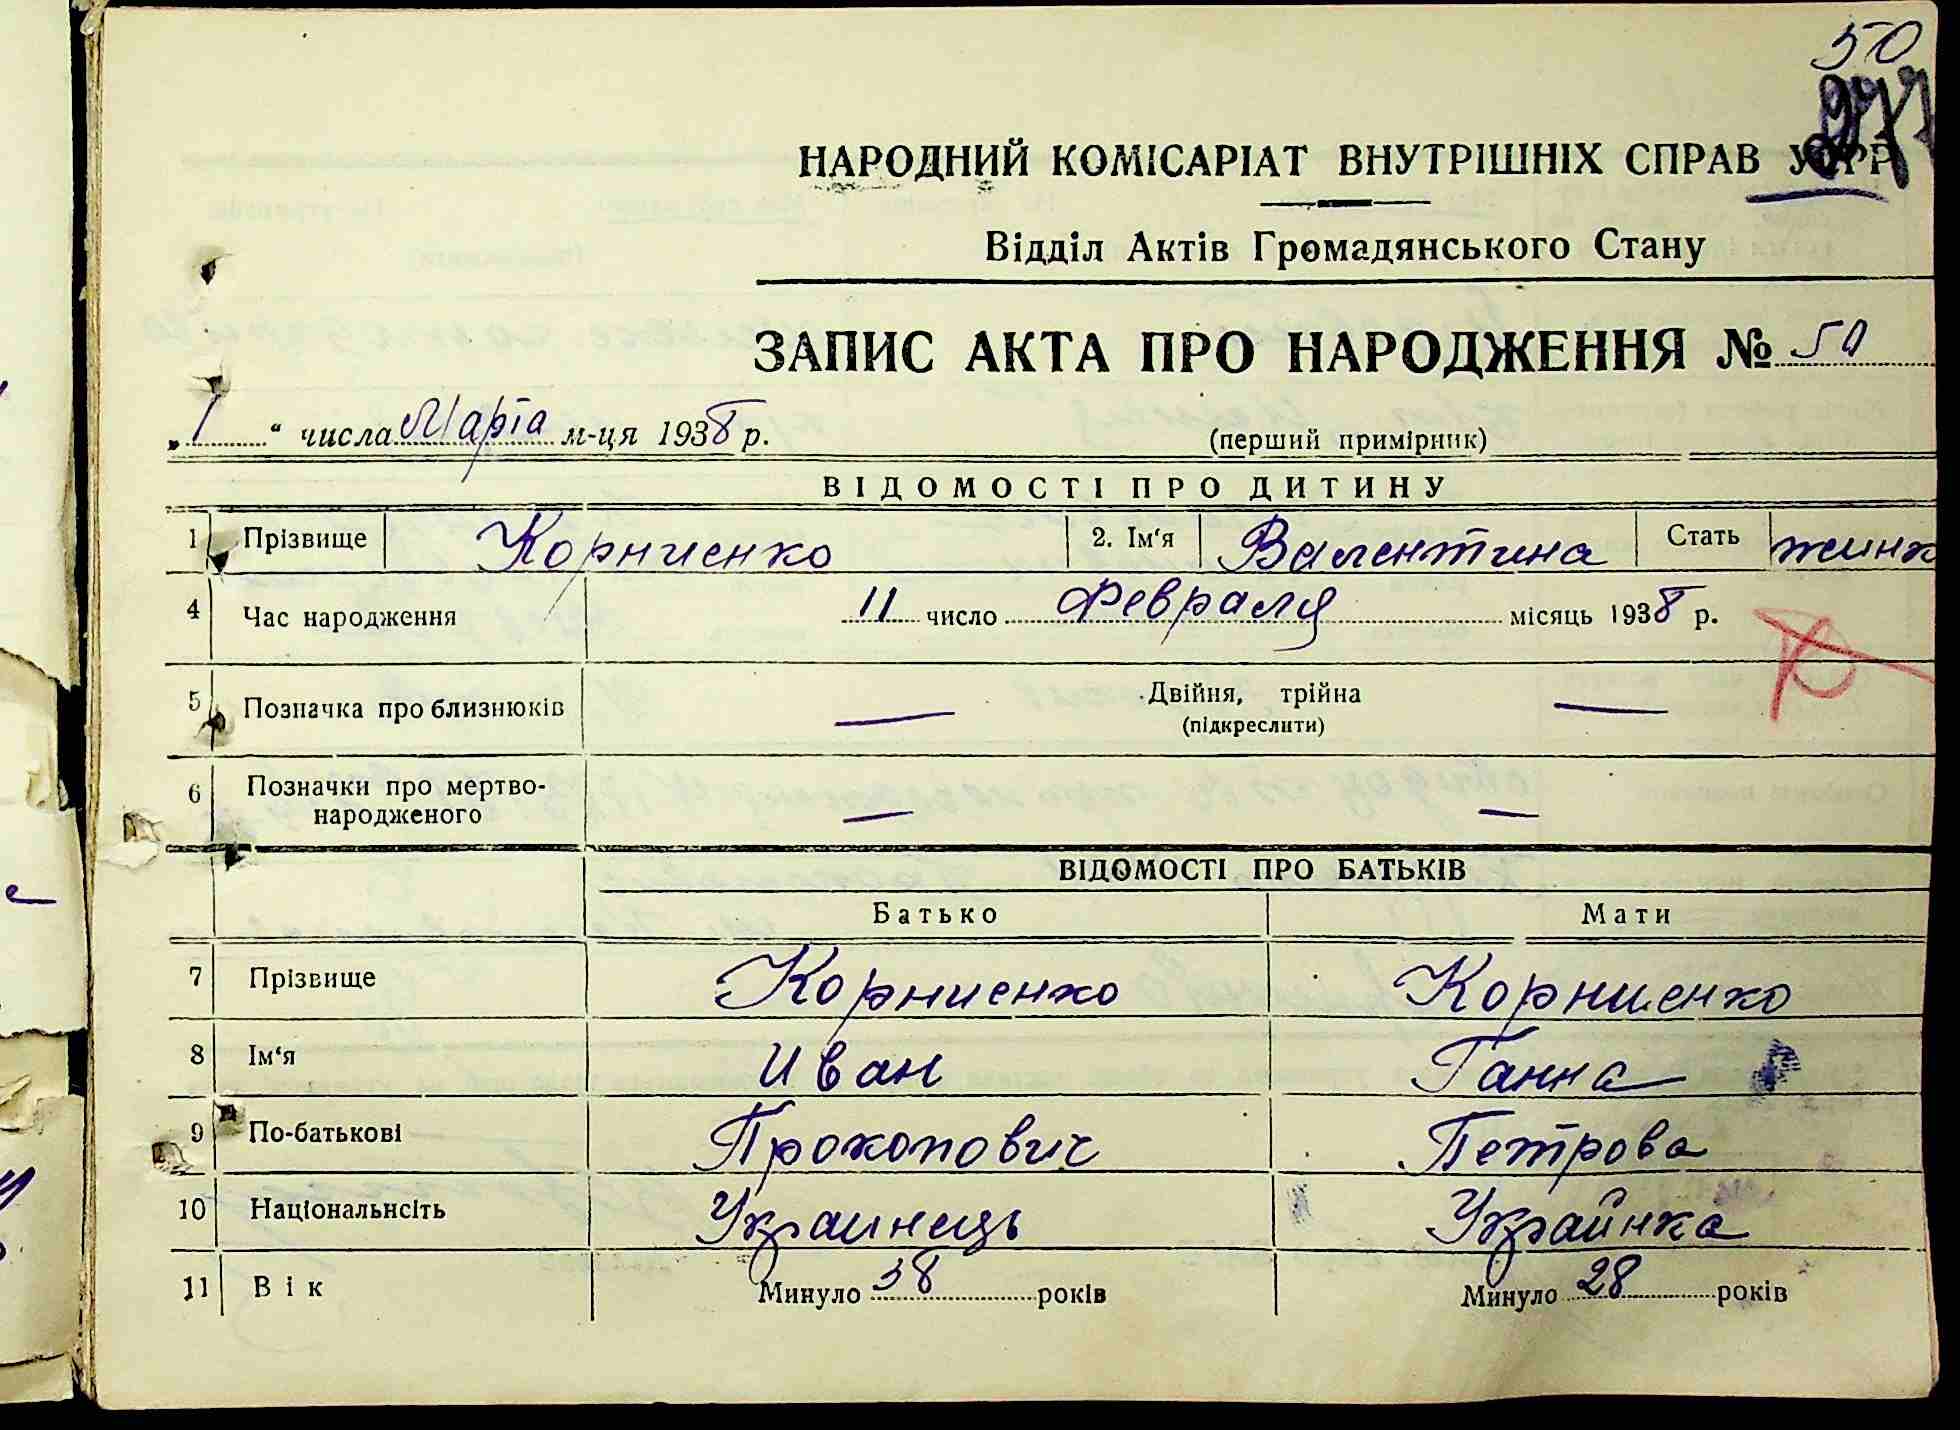 50
277
НАРОДНИЙ КОМІСАРІАТ ВНУТРІШНІХ СПРАВ УСРР
Відділ Актів Громадянського Стану
ЗАПИС АКТА ПРО НАРОДЖЕННЯ № 50
„1“ числа Марта м-ця 1938 р.
(перший примірник)
ВІДОМОСТІ ПРО ДИТИНУ
1 Прізвище Корниенко 2. Ім'я Валентина Стать жинк
4 Час народження 11 число Февраля місяць 1938 р.
5 Позначка про близнюків — Двійня, трійна —
(підкреслити)
6 Позначки про мертво-
народженого — —
ВІДОМОСТІ ПРО БАТЬКІВ
Батько Мати
7 Прізвище Корниенко Корниенко
8 Ім'я Иван Ганна
9 По-батькові Прокопович Петрова
10 Національнсіть Украинець Украйнка
11 Вік Минуло 38 років Минуло 28 років